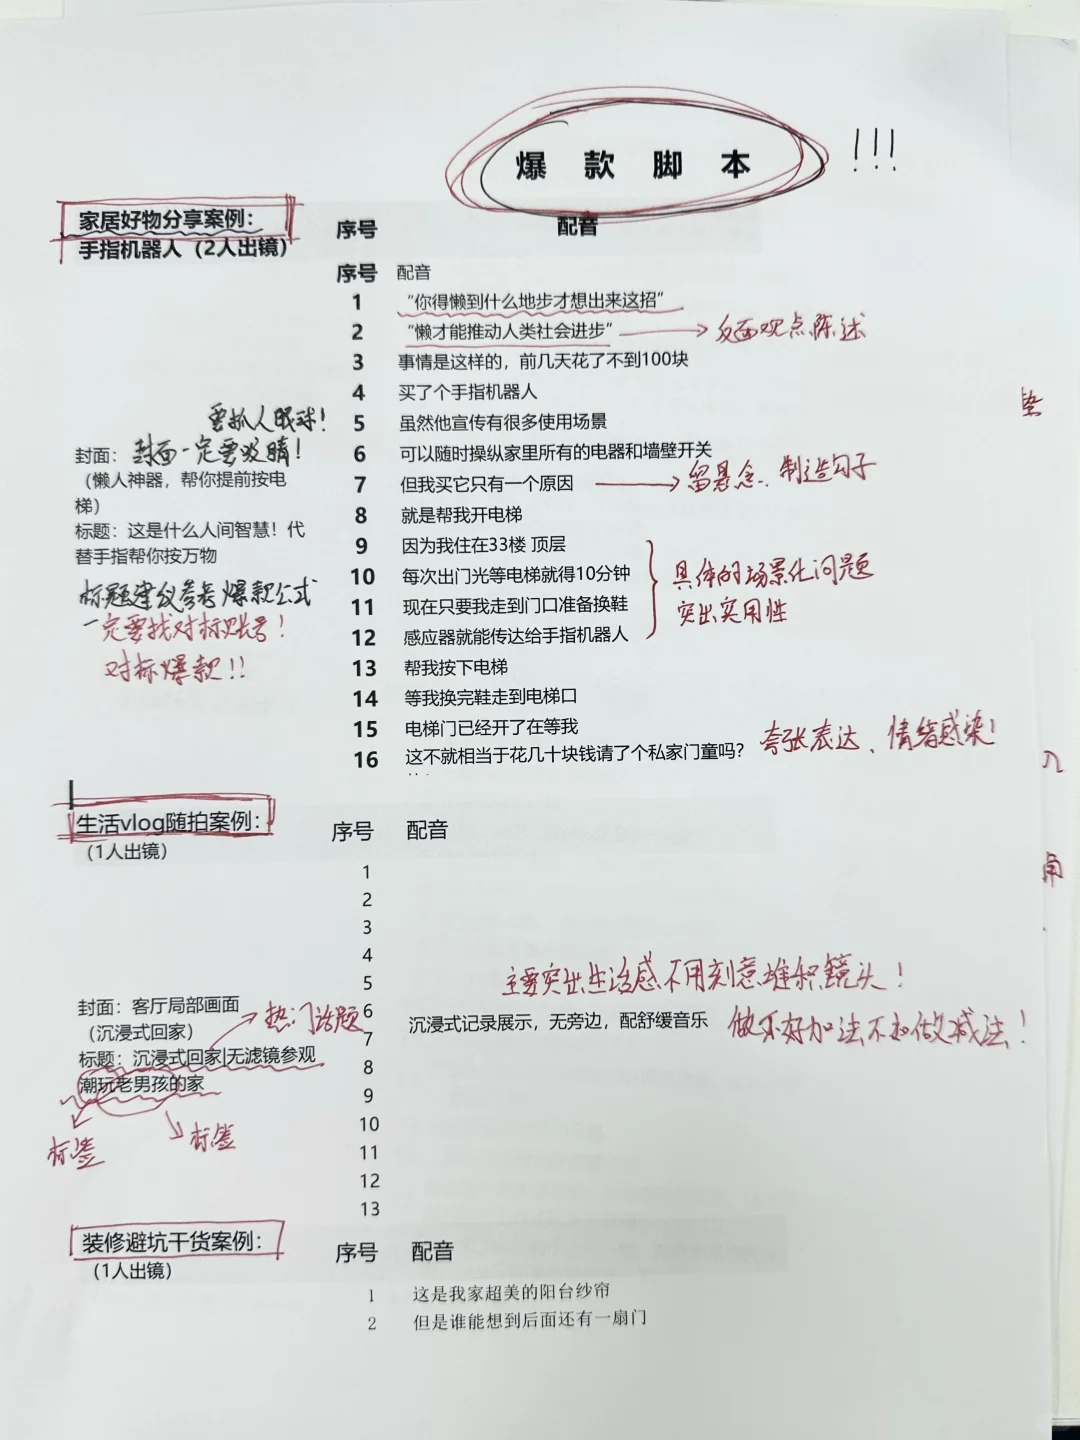 爆款脚本 !!!
家居好物分享案例：
手指机器人（2人出镜）
序号 配音
序号 配音
1 “你得懒到什么地步才想出来这招”
2 “懒才能推动人类社会进步” 反面观点陈述
3 事情是这样的，前几天花了不到100块
4 买了个手指机器人
要抓人眼球！
5 虽然他宣传有很多使用场景
封面： 封面一定要吸睛！
（懒人神器，帮你提前按电
梯）
6 可以随时操纵家里所有的电器和墙壁开关
7 但我买它只有一个原因 留悬念.. 制造勾子
8 就是帮我开电梯
标题：这是什么人间智慧！代
替手指帮你按万物
9 因为我住在33楼 顶层
10 每次出门光等电梯就得10分钟
具体的场景化问题
突出实用性
标题建议参考爆款公式
一定要找对标账号！
对标爆款!!
11 现在只要我走到门口准备换鞋
12 感应器就能传达给手指机器人
13 帮我按下电梯
14 等我换完鞋走到电梯口
15 电梯门已经开了在等我
16 这不就相当于花几十块钱请了个私家门童吗？ 夸张表达、情绪感染！
生活vlog随拍案例：
（1人出镜）
序号 配音
1
2
3
4
5
主要突出生活感不用刻意堆积镜头！
封面：客厅局部画面
（沉浸式回家）
热门话题
6
沉浸式记录展示，无旁边，配舒缓音乐 做不好加法不如做减法！
7
标题：沉浸式回家|无滤镜参观
潮玩老男孩的家
标签
标签
8
9
10
11
12
13
装修避坑干货案例：
（1人出镜）
序号 配音
1 这是我家超美的阳台纱帘
2 但是谁能想到后面还有一扇门